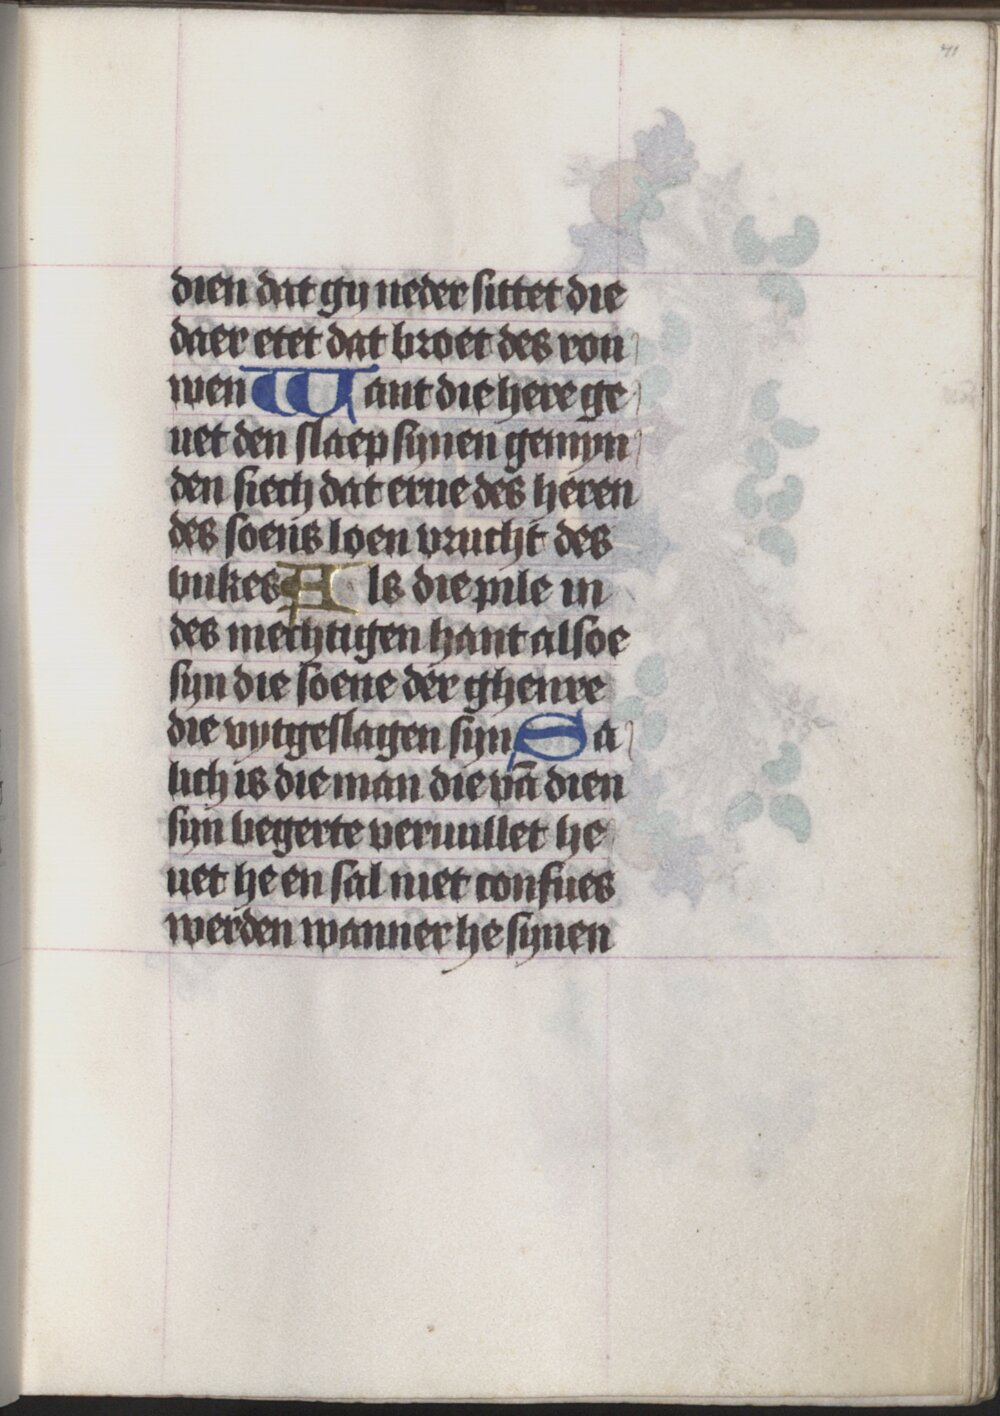 41
dien dat gy neder sittet die
daer etet dat broet des rou
wen Want die here ge
uet den slaep synen gemyn
den siech dat erue des heren
des soens loen vrucht des
bukes Als die pile in
des mechtigen hant alsoe
syn die soene der ghenre
die vytgeslagen syn Sa
lich is die man die vā dien
syn begerte veruullet he
uet he en sal niet confues
werden wanner he synen